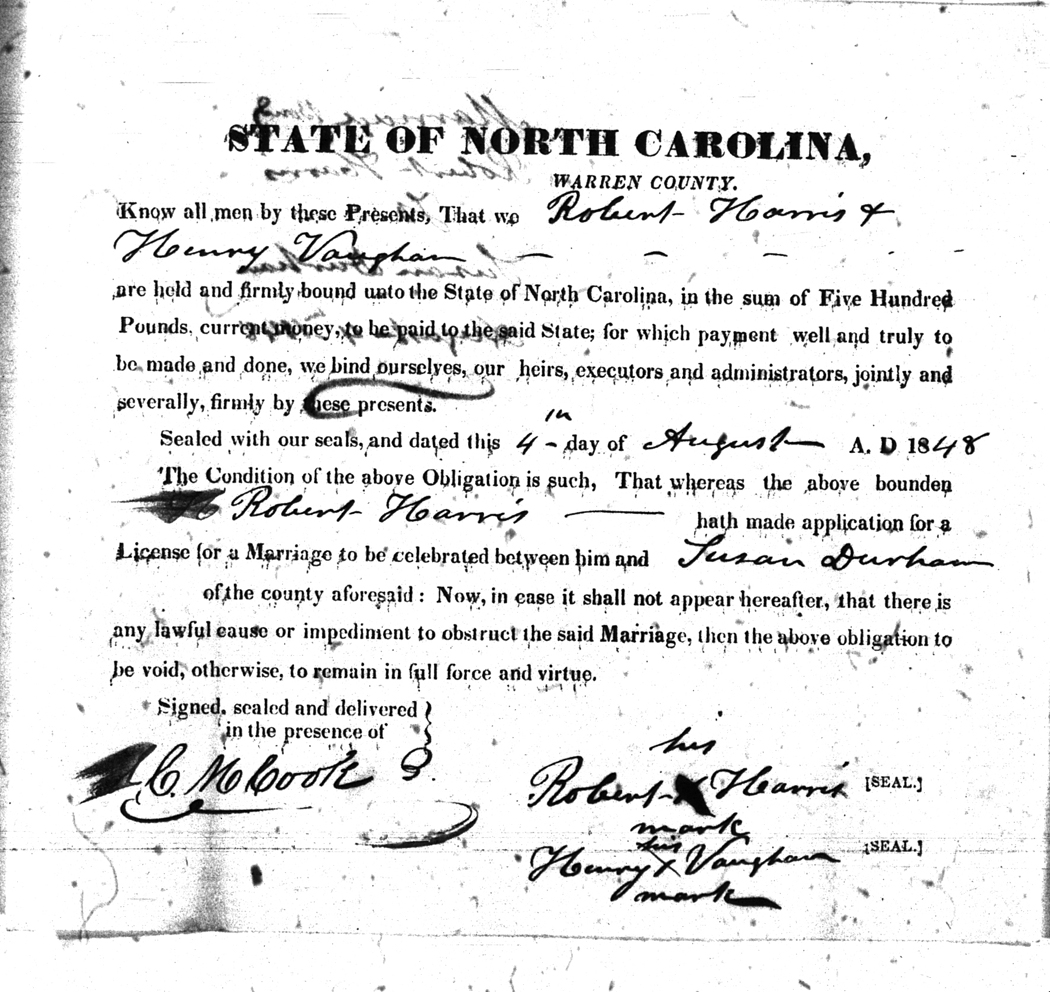 STATE OF NORTH CAROLINA,
WARREN COUNTY.
Know all men by these Presents, That we Robert Harris &
Henry Vaughan
are held and firmly bound unto the State of North Carolina, in the sum of Five Hundred
Pounds, current money, to be paid to the said State; for which payment well and truly to
be made and done, we bind ourselves, our heirs, executors and administrators, jointly and
severally, firmly by these presents.
Sealed with our seals, and dated this 4th day of August A. D 1848
The Condition of the above Obligation is such, That whereas the above bounden
Robert Harris hath made application for a
License for a Marriage to be celebrated between him and Susan Durham
of the county aforesaid: Now, in case it shall not appear hereafter, that there is
any lawful cause or impediment to obstruct the said Marriage, then the above obligation to
be void, otherwise, to remain in full force and virtue.
Signed, sealed and delivered }
in the presence of
C. M Cook
his
Robert X Harris [SEAL.]
mark
his
Henry X Vaughan [SEAL.]
mark